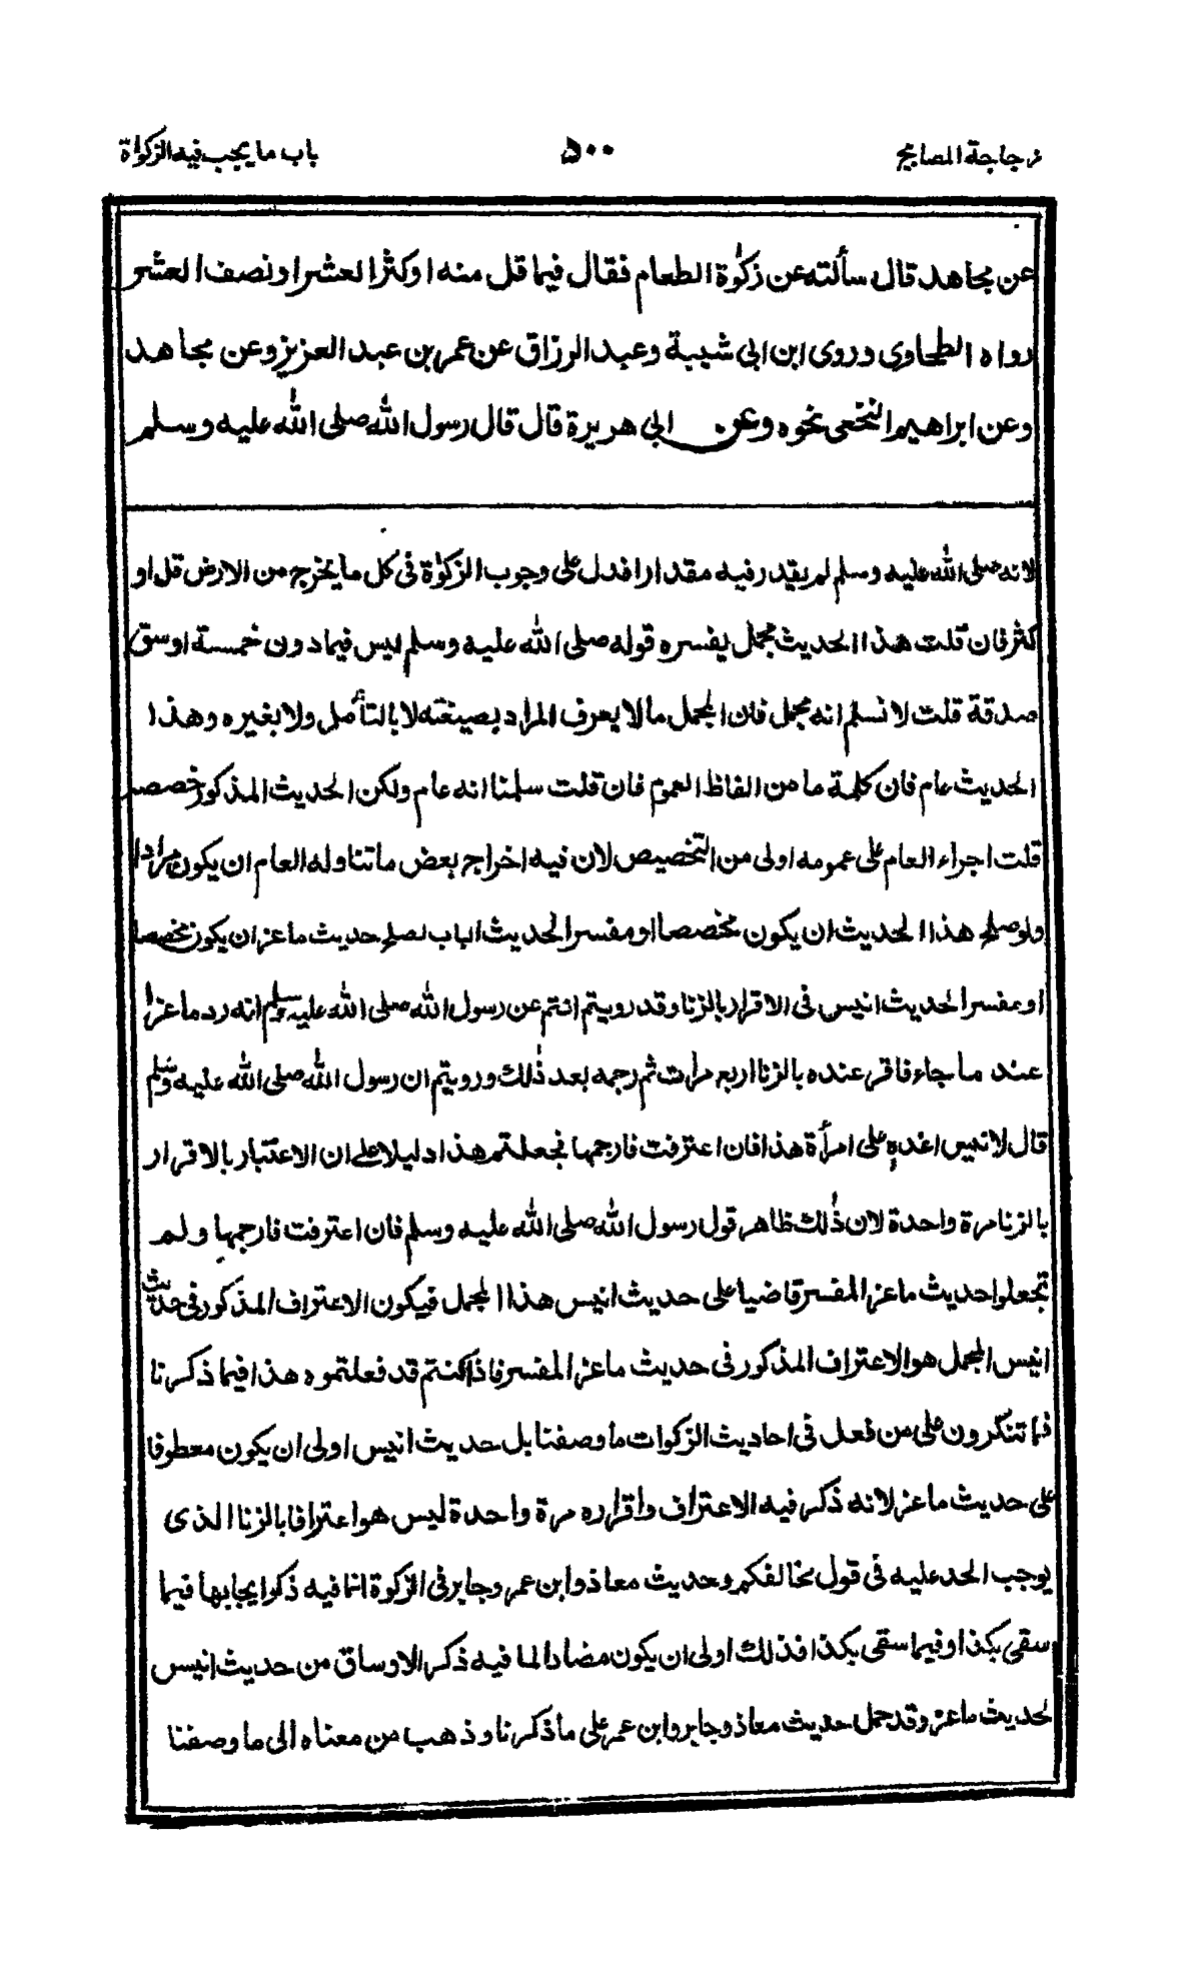 زجاجة المصابيح ٥٠٠ باب ما يجب فيه الزكواة
عن مجاهد قال سألته عن زكوٰة الطعام فقال فيما قل منه او كثر العشر او نصف العشر
رواه الطحاوى وروى ابن ابى شيبة وعبد الرزاق عن عمر بن عبد العزيز وعن مجاهد
وعن ابراهيم النخعى نحوه وعن ابى هريرة قال قال رسول الله صلى الله عليه وسلم
لانه صلى الله عليه وسلم لم يقيد رفيه مقدارا فدل على وجوب الزكوٰة فى كل ما يخرج من الارض قل او
كثر فان قلت هذا الحديث مجمل يفسره قوله صلى الله عليه وسلم ليس فيما دون خمسة اوسق
صدقة قلت لا نسلم انه مجمل فان المجمل ما لا يعرف المراد بصيغته لا بالتأمل ولا بغيره وهذا
الحديث عام فان كلمة ما من الفاظ العموم فان قلت سلمنا انه عام ولكن الحديث المذكور خصصه
قلت اجراء العام على عمومه اولى من التخصيص لان فيه اخراج بعض ما تناوله العام ان يكون مرادا
ولو صلح هذا الحديث ان يكون مخصصا او مفسرا لحديث الباب لصلح حديث ماعز ان يكون مخصصا
او مفسرا لحديث انيس فى الاقرار بالزنا وقد رويتم انتم عن رسول الله صلى الله عليه وسلم انه رد ماعزا
عند ما جاء فاقر عنده بالزنا اربع مرات ثم رجمه بعد ذٰلك ورويتم ان رسول الله صلى الله عليه وسلم
قال لانيس اغد على امرأة هذا فان اعترفت فارجمها فجعلتم هذا دليلا على ان الاعتبار بالاقرار
بالزنا مرة واحدة لان ذٰلك ظاهر قول رسول الله صلى الله عليه وسلم فان اعترفت فارجمها ولم
تجعلوا حديث ماعز المفسر قاضيا على حديث انيس هذا المجمل فيكون الاعتراف المذكور فى حديث
انيس المجمل هو الاعتراف المذكور فى حديث ماعز المفسر فاذا كنتم قد فعلتموه هذا فيما ذكرنا
فما تنكرون على من فعل فى احاديث الزكوات ما وصفنا بل حديث انيس اولى ان يكون معطوفا
على حديث ماعز لانه ذكر فيه الاعتراف واقراره مرة واحدة ليس هو اعترافا بالزنا الذى
يوجب الحد عليه فى قول مخالفكم وحديث معاذ وابن عمر وجابر فى الزكوة انما فيه ذكر ايجابها فيما
سقى بكذا وفيما سقى بكذا فذلك اولى ان يكون مضادا لما فيه ذكر الاوساق من حديث انيس
لحديث ماعز وقد حمل حديث معاذ وجابر وابن عمر على ما ذكرنا وذهب من معناه الى ما وصفنا